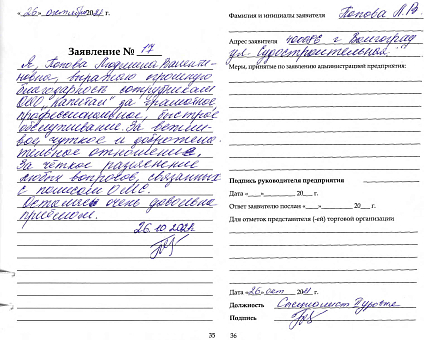 «26» октября 2021 г.
Заявление № 17
Я, Попова Людмила Валенти-
новна, выражаю огромную
благодарность сотрудникам
ООО „Капитал" за грамотное,
профессиональное, быстрое
обслуживание. За вежли-
вое чуткое и доброжела-
тельное отношение.
За чёткое разъяснение
любых вопросов, связанных
с полисом ОМС.
Осталась очень довольна
приёмом.
26.10.2021
35
Фамилия и инициалы заявителя Попова Л.В.
Адрес заявителя 400098 г. Волгоград
ул. Судостроительная
Меры, принятые по заявлению администрацией предприятия:
Подпись руководителя предприятия
Дата «___»__________ 20___ г.
Ответ заявителю послан «___»__________ 20___ г.
Для отметок представителя (-ей) торговой организации
Дата «26» окт 2021 г.
Должность Специалист
Подпись
36